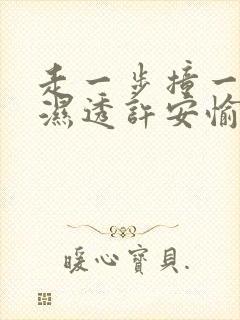 走一步撞一
濕透許安愉
暖心寶貝.